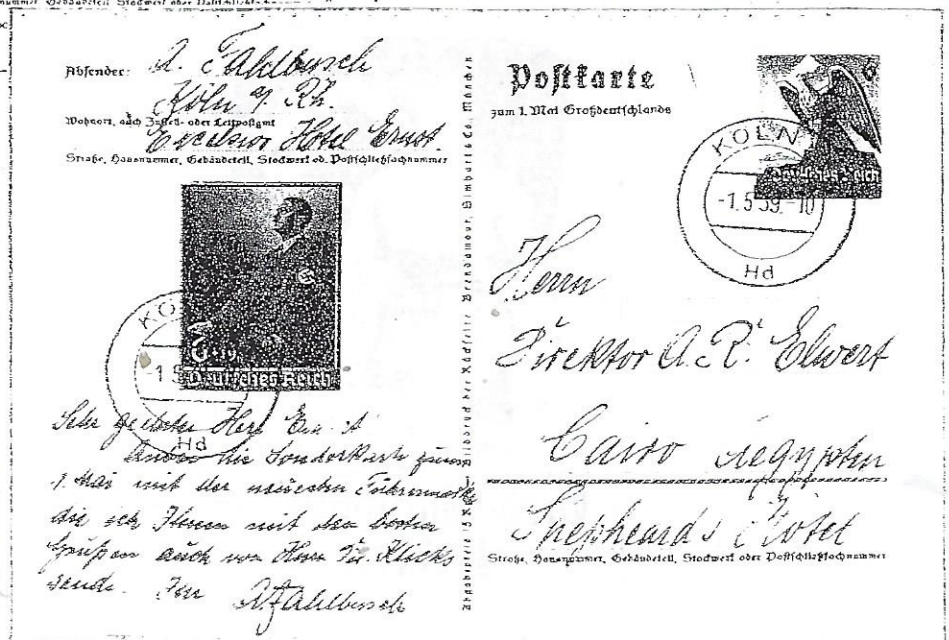 Absender: A. Fahlbusch
Köln a/Rh.
Wohnort, auch Zustell- oder Leitpostamt
Excelsior Hotel Ernst.
Straße, Hausnummer, Gebäudeteil, Stockwerk od. Postschließfachnummer
6+19
Deutsches Reich
KÖ
-1.5
Hd
Sehr geehrter Herr
die Sonderkarte zum
1. Mai mit der neuesten Führermarke
die ich Ihnen mit den besten
Grüßen auch von Herrn Klicks
sende. Ihr A Fahlbusch
Postkarte
zum 1. Mai Großdeutschlands
6
Deutsches Reich
KÖLN
-1.5.39.-10
Hd
Herrn
Direktor A. R. Elwert
Cairo Aegypten
Shepheard's Hotel
Straße, Hausnummer, Gebäudeteil, Stockwerk oder Postschließfachnummer